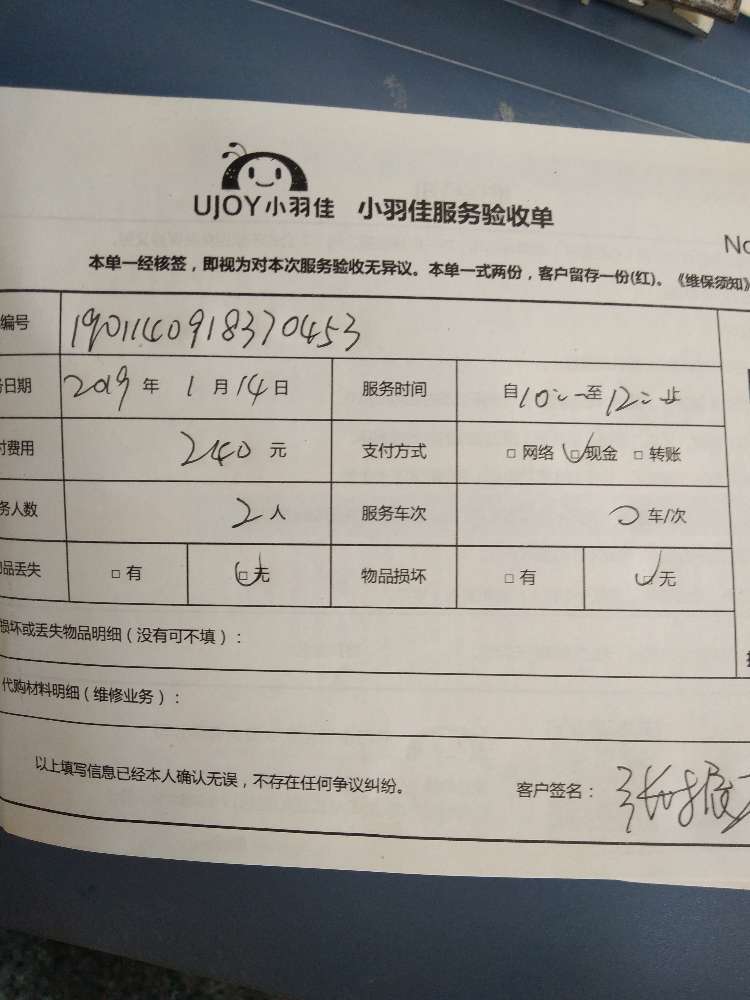 UJOY小羽佳 小羽佳服务验收单
No
本单一经核签，即视为对本次服务验收无异议。本单一式两份，客户留存一份(红)。《维保须知》
编号 1901140918370453
日期 2019年 1月14日 服务时间 自10:00至12:00止
付费用 240元 支付方式 □网络 □现金 □转账
务人数 2人 服务车次 0车/次
品丢失 □有 □无 物品损坏 □有 □无
损坏或丢失物品明细（没有可不填）：
代购材料明细（维修业务）：
以上填写信息已经本人确认无误，不存在任何争议纠纷。 客户签名：张振